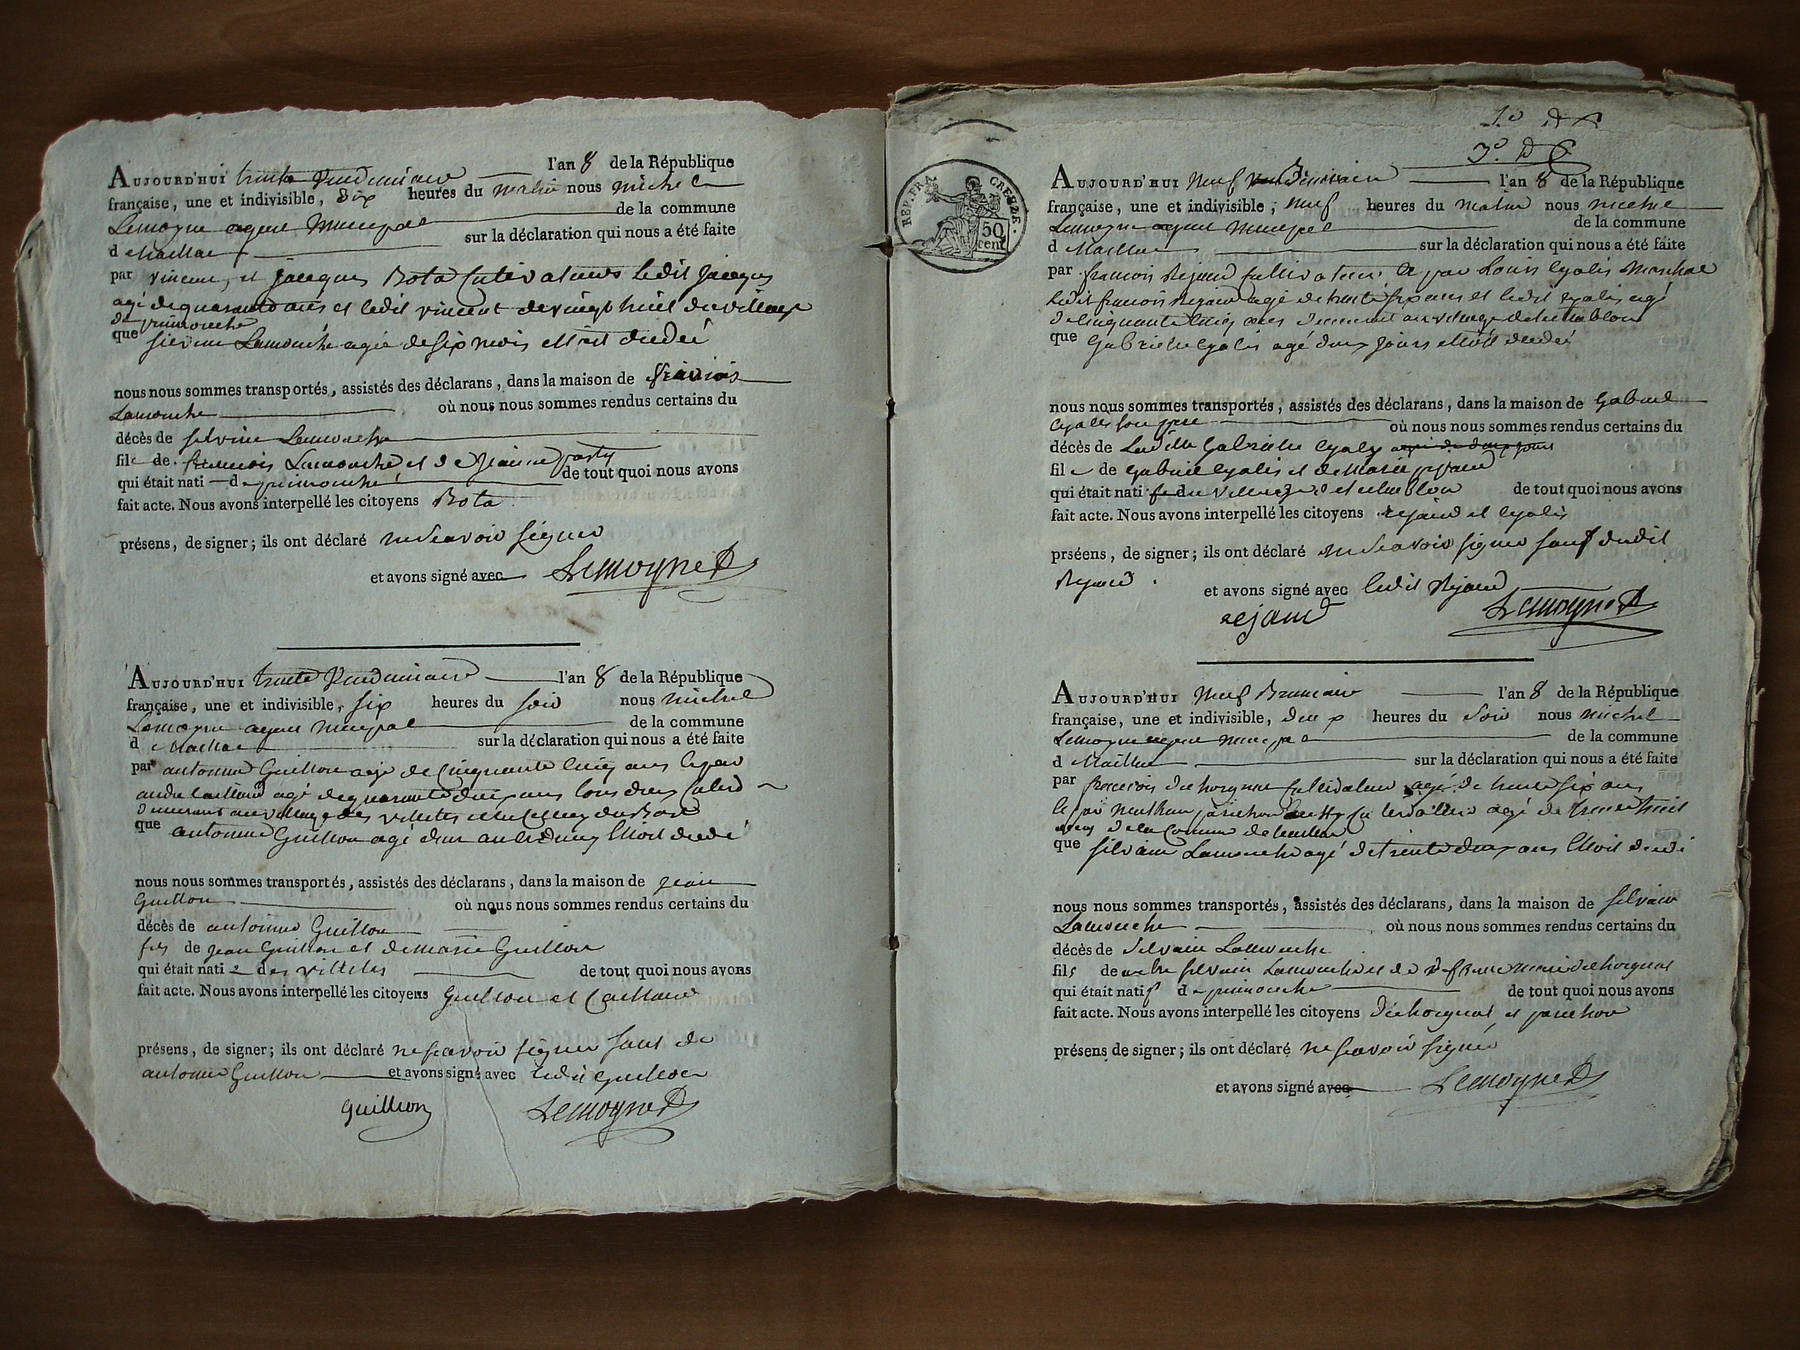 AUJOURD'HUI trente Vendemiaire l'an 8 de la République
française, une et indivisible, dix heures du matin nous michel
Lemoyne agent Municipal de la commune
d e Maillac sur la déclaration qui nous a été faite
par vincent, et jacques Bota Cultivateurs ledit jacques
agé de quarante ans et ledit vincent de vingt huit du village
de primonche
que silvine Lamonche agée de six mois etoit decedé
nous nous sommes transportés, assistés des déclarans, dans la maison de francois
Lamonche où nous nous sommes rendus certains du
décès de silvine Lamonche
fil e de francois Lamonche et de Jeanne
qui était nati d e primonche de tout quoi nous avons
fait acte. Nous avons interpellé les citoyens Bota
présens, de signer; ils ont déclaré ne Scavoir signer
et avons signé avec Lemoyne
AUJOURD'HUI trente Vendemiaire l'an 8 de la République
française, une et indivisible, six heures du soir nous michel
Lemoyne agent Municipal de la commune
d e Maillac sur la déclaration qui nous a été faite
par antoine Guillon agé de Cinquante Cinq ans
andre Caillaud agé de quarante deux ans tous deux
demeurant au village des villettes
que antoine Guillon agé d'un an Etoit decedé
nous nous sommes transportés, assistés des déclarans, dans la maison de jean
Guillon où nous nous sommes rendus certains du
décès de antoine Guillon
fils de jean Guillon et de marie Guillon
qui était nati des villettes de tout quoi nous avons
fait acte. Nous avons interpellé les citoyens Guillon et Caillaud
présens, de signer; ils ont déclaré ne scavoir signer sauf de
antoine Guillon et avons signé avec ledit Guillon
Guillion Lemoyne
REP. FRA. CREUZE.
50
cent
AUJOURD'HUI Neuf Brumaire l'an 8 de la République
française, une et indivisible; neuf heures du matin nous michel
Lemoyne agent Municipal de la commune
d e Maillac sur la déclaration qui nous a été faite
par francois Rejaud Cultivateur et par Louis Cyalis Marechal
ledit francois Rejaud agé de trente six ans et ledit Cyalis agé
de Cinquante Cinq ans demeurant au village
que Gabrielle Cyalis agé deux jours etoit decedé
nous nous sommes transportés, assistés des déclarans, dans la maison de Gabriel
Cyalis son pere où nous nous sommes rendus certains du
décès de Ladite Gabrielle Cyalis agé de deux jours
fil e de Gabriel Cyalis et de Marie Rejaud
qui était nati fe du village de tout quoi nous avons
fait acte. Nous avons interpellé les citoyens rejaud et Cyalis
prséens, de signer; ils ont déclaré ne Scavoir signer sauf dudit
Rejaud. et avons signé avec ledit Rejaud
rejaud Lemoyne
AUJOURD'HUI Neuf Brumaire l'an 8 de la République
française, une et indivisible, deux heures du Soir nous michel
Lemoyne agent Municipal de la commune
d e Maillac sur la déclaration qui nous a été faite
par francois Cultivateur agé de trente six ans
et par agé de trente huit
ans de la Commune de Maillac
que silvain Lamonche agé de trente deux ans Etoit decedé
nous nous sommes transportés, assistés des déclarans, dans la maison de silvain
Lamonche où nous nous sommes rendus certains du
décès de silvain Lamonche
fils de autre silvain Lamonche et de
qui était natif d e primonche de tout quoi nous avons
fait acte. Nous avons interpellé les citoyens
présens de signer; ils ont déclaré ne scavoir signé
et avons signé avec Lemoyne